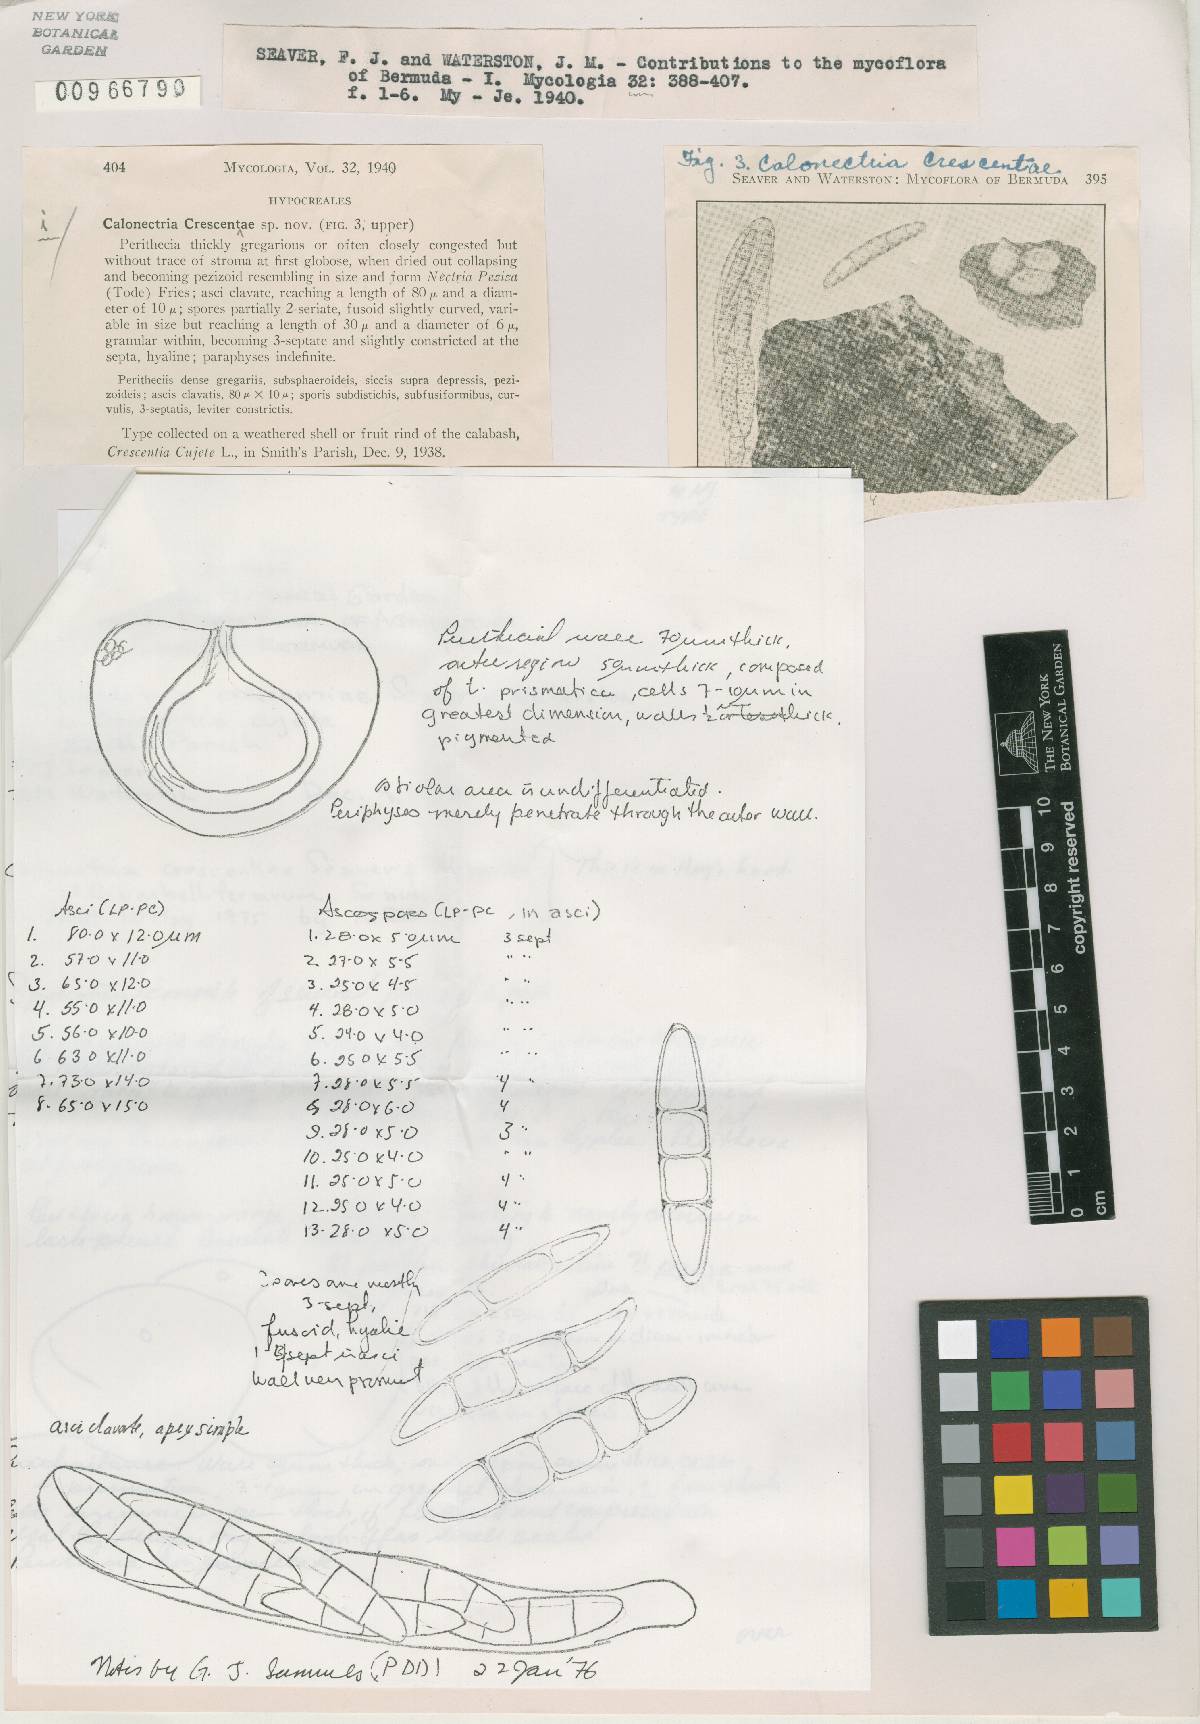 NEW YORK
BOTANICAL
GARDEN
00966790
SEAVER, F. J. and WATERSTON, J. M. - Contributions to the mycoflora
of Bermuda - I. Mycologia 32: 388-407.
f. 1-6. My - Je. 1940.
404 MYCOLOGIA, VOL. 32, 1940
HYPOCREALES
i/
Calonectria Crescentae sp. nov. (FIG. 3, upper)
Perithecia thickly gregarious or often closely congested but
without trace of stroma at first globose, when dried out collapsing
and becoming pezizoid resembling in size and form Nectria Peziza
(Tode) Fries; asci clavate, reaching a length of 80 μ and a diam-
eter of 10 μ; spores partially 2-seriate, fusoid slightly curved, vari-
able in size but reaching a length of 30 μ and a diameter of 6 μ,
granular within, becoming 3-septate and slightly constricted at the
septa, hyaline; paraphyses indefinite.
Peritheciis dense gregariis, subsphaeroideis, siccis supra depressis, pezi-
zoideis; ascis clavatis, 80 μ × 10 μ; sporis subdistichis, subfusiformibus, cur-
vulis, 3-septatis, leviter constrictis.
Type collected on a weathered shell or fruit rind of the calabash,
Crescentia Cujete L., in Smith's Parish, Dec. 9, 1938.
Fig. 3. Calonectria Crescentiae
SEAVER AND WATERSTON: MYCOFLORA OF BERMUDA 395
Perithecial wall 70μm thick,
outer region 50μm thick, composed
of t. prismatica, cells 7-10μm in
greatest dimension, walls thick.
pigmented
Ostiolar area is undifferentiated.
Periphyses merely penetrate through the outer wall.
Asci (LP-PC)
1. 80.0 x 12.0μm
2. 57.0 x 11.0
3. 65.0 x 12.0
4. 55.0 x 11.0
5. 56.0 x 10.0
6 63.0 x 11.0
7. 73.0 x 14.0
8. 65.0 x 15.0
Ascospores (LP-PC, in asci)
1. 28.0 x 5.0μm 3 sept
2. 27.0 x 5.5 " "
3. 25.0 x 4.5 " "
4. 28.0 x 5.0 " "
5. 24.0 x 4.0 " "
6. 25.0 x 5.5 " "
7. 28.0 x 5.5 4 "
8 28.0 x 6.0 4
9. 28.0 x 5.0 3 "
10. 25.0 x 4.0 " "
11. 25.0 x 5.0 4 "
12. 25.0 x 4.0 4 "
13. 28.0 x 5.0 4 "
Spores are mostly
3-sept,
fusoid, hyalie
sept in asci
Wall
asci clavate, apex simple
Notes by G. J. Samuels (PDD) 22 Jan '76
THE NEW YORK
BOTANICAL GARDEN
copyright reserved
0 1 2 3 4 5 6 7 8 9 10
cm